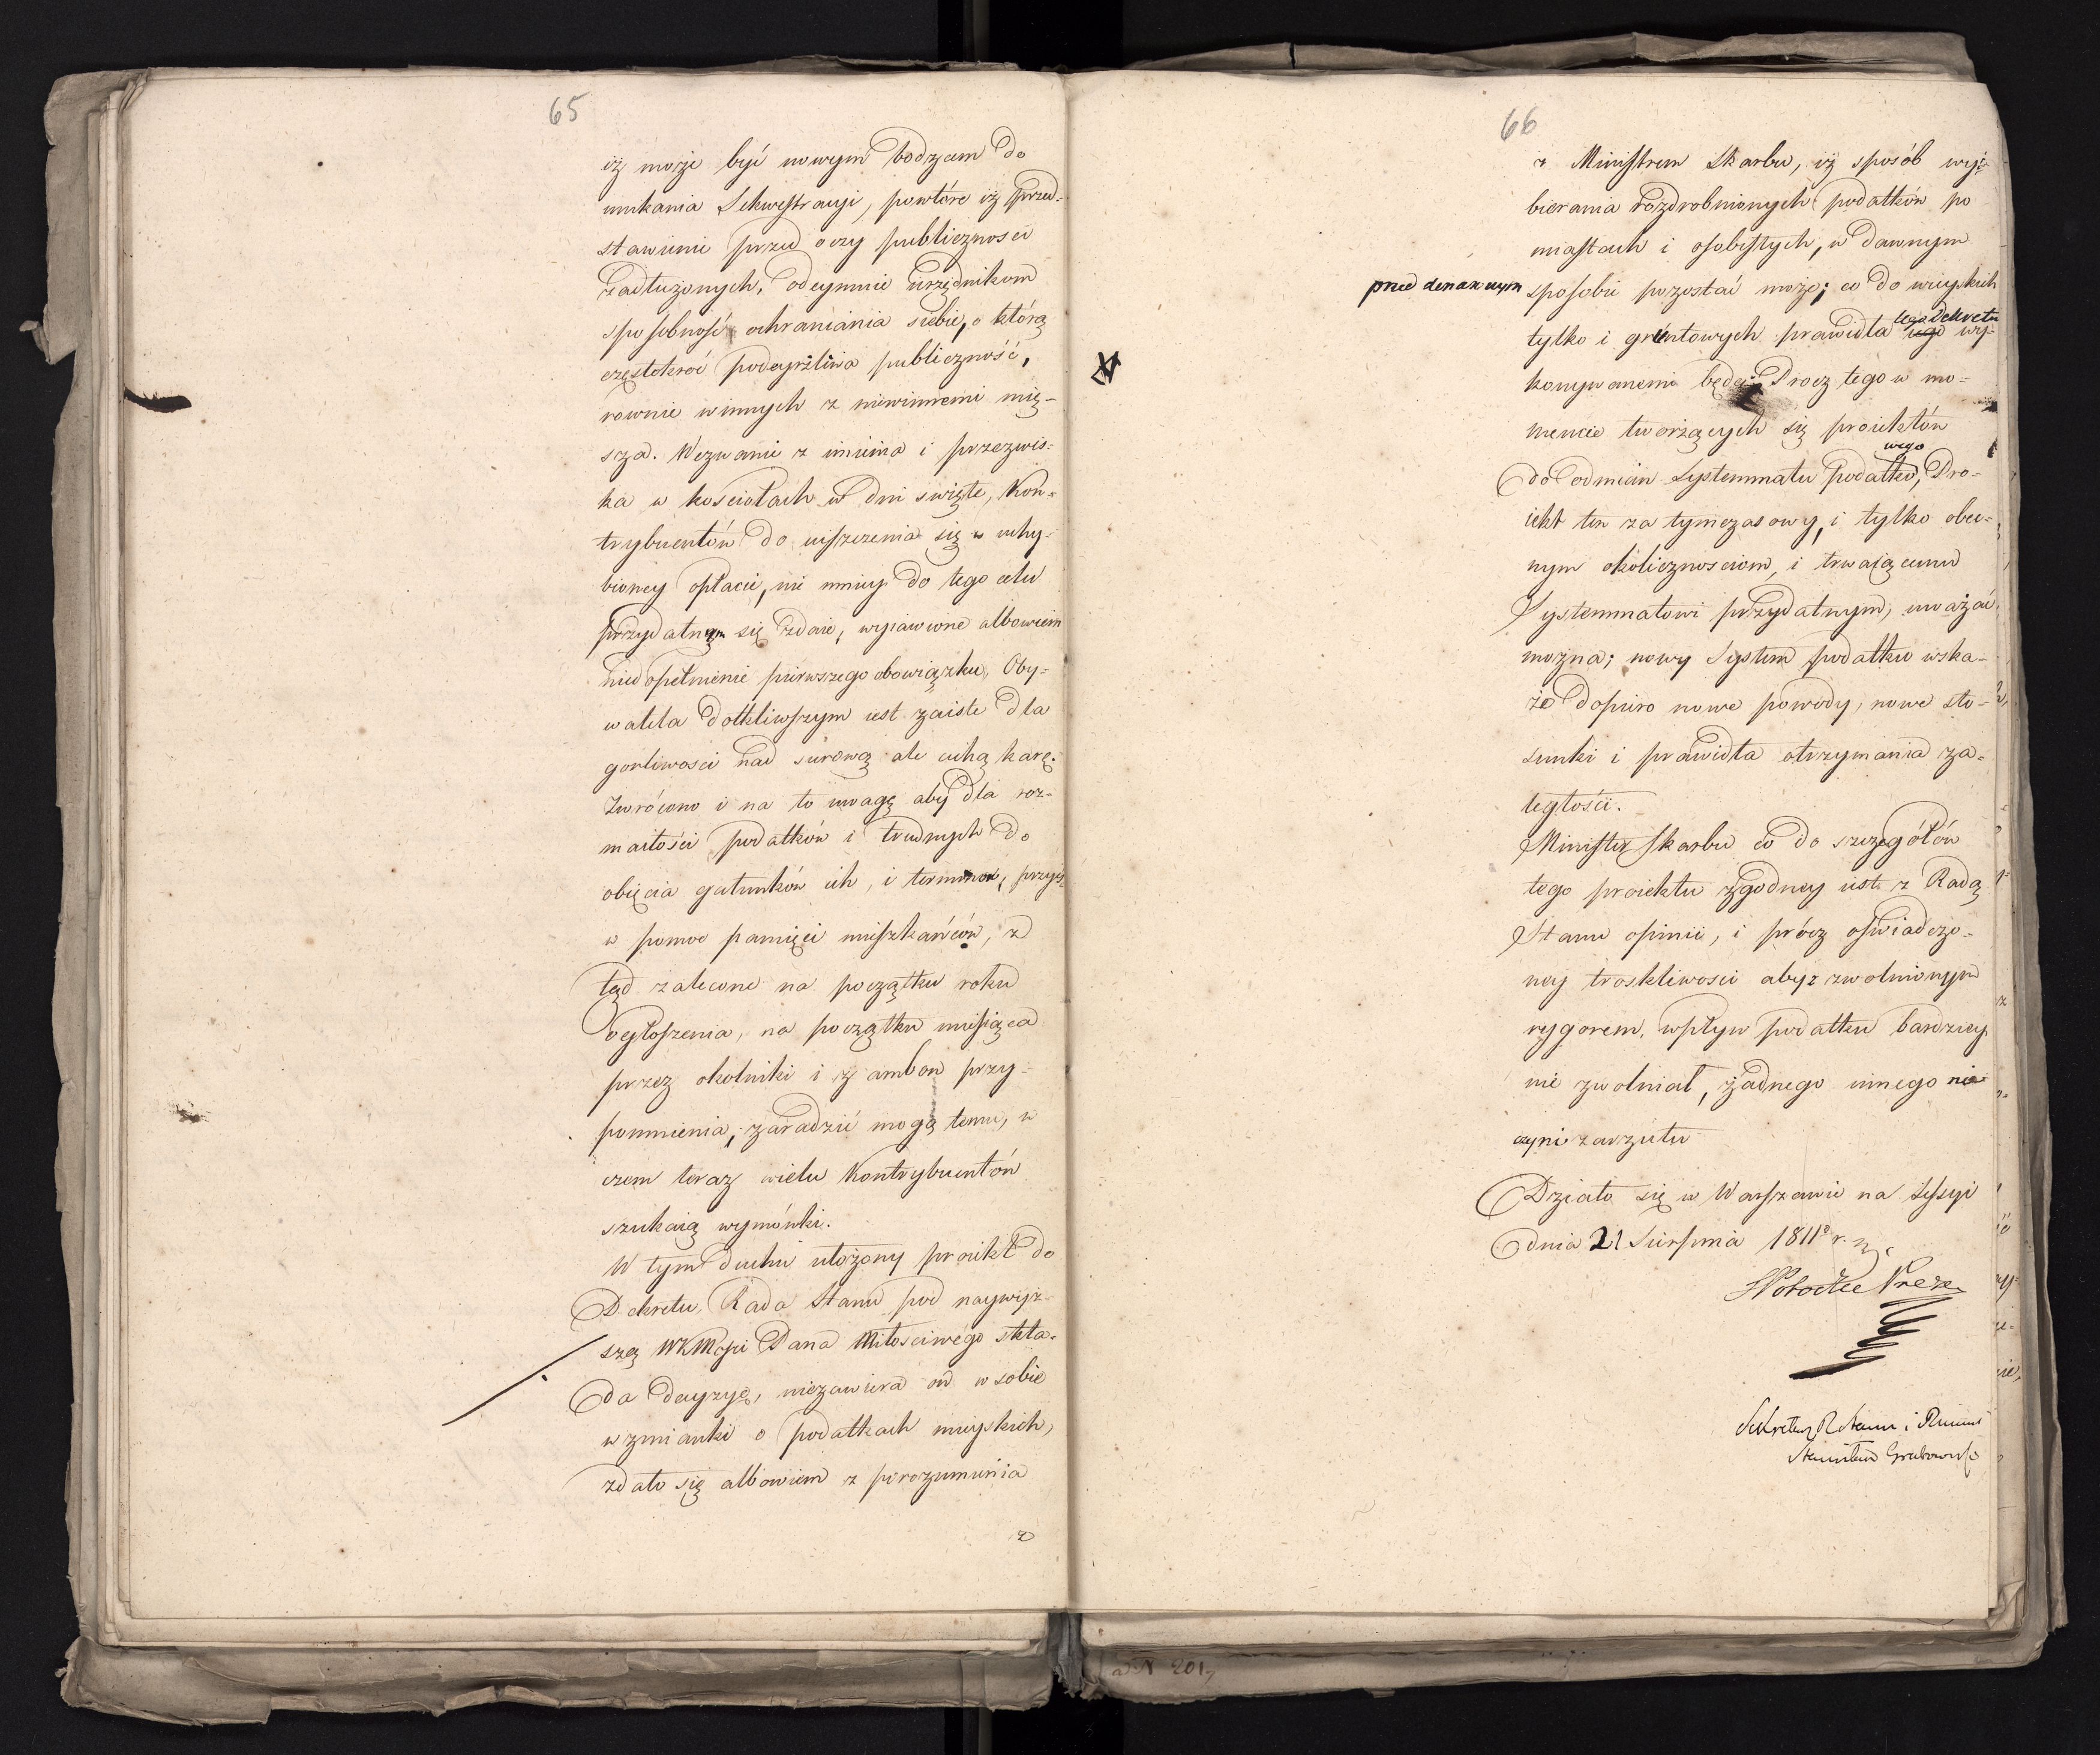 65
iż może być nowym bodzcem do
unikania Sekwestracyi, powtóre iż przed-
stawienie przed oczy publicznosci
zadłużonych, odeymnie urzędnikom
sposobność ochraniania siebie, o którą
częstokroć podeyrźliwa publiczność,
rownie winnych z niewinnemi mię-
sza. Wezwanie z imienia i przezwis-
ka w kosciołach w dni swięte, Kon-
trybuentów do uiszczenia się w uchy-
bioney opłacie, nie mniey do tego celu
przydatnym się zdaie, wyiawione albowiem
niedopełnienie pierwszego obowiązku, Oby-
watela dotkliwszym iest zaiste dla
gorliwosci nad surową ale cichą karę.
Zwrócono i na to uwagę aby dla roz-
maitości podatków i trudnych do
obięcia gatunków ich, i terminów, przyiść
w pomoc pamięci mieszkańców, z
tąd zalecone na początku roku
ogłoszenia, na początku miesiąca
przez okolniki i z ambon przy-
pomnienia, zaradzić mogą temu, w
czem teraz wielu Kontrybuentów
szukaią wymówki.
W tym duchu ułożony proiekt do
Dekretu, Rada Stanu pod naywyż-
szą WKMcsci Pana Miłosciwego skła-
da decyzyę, niezawiera on w sobie
wzmianki o podatkach mieyskich,
zdało się albowiem z porozumienia
z
66
z Ministrem Skarbu, iż sposób wy-
bierania rozdrobnionych podatków po
miastach i osobistych, w dawnym
przed denaknym sposobie pozostać może; co do wieyskich
tego dekretu
tylko i gruntowych prawidła tego wy-
konywanemi będą. Procz tego w mo-
mencie tworzących się proiektów
wego
do odmian Systemmatu podatko, Pro-
iekt ten za tymczasowy, i tylko obec-
nym okolicznosciom, i trwaiącemu
Systemmatowi przydatnym, uważać
można; nowy System podatku wska-
że dopiero nowe powody, nowe sto-
sunki i prawidła otrzymania za-
ległości.
Minister Skarbu co do szczegółów
tego proiektu zgodney iest z Radą
Stanu opinii, i prócz oświadczo-
ney troskliwosci aby z zwolnionym
rygorem, wpływ podatku bardziey
nie zwolniał, żadnego innego nie
czyni zarzutu
Działo się w Warszawie na Sessyi
dnia 21 Sierpnia 1811o r.
S Potocki Preze
Sekretarz R Stanu i Ministr
Stanisław Grabowski
aN 201,